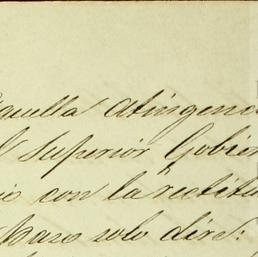 aquella atingenc
l Superior Gobier
io con la rectitu
paso solo diré: